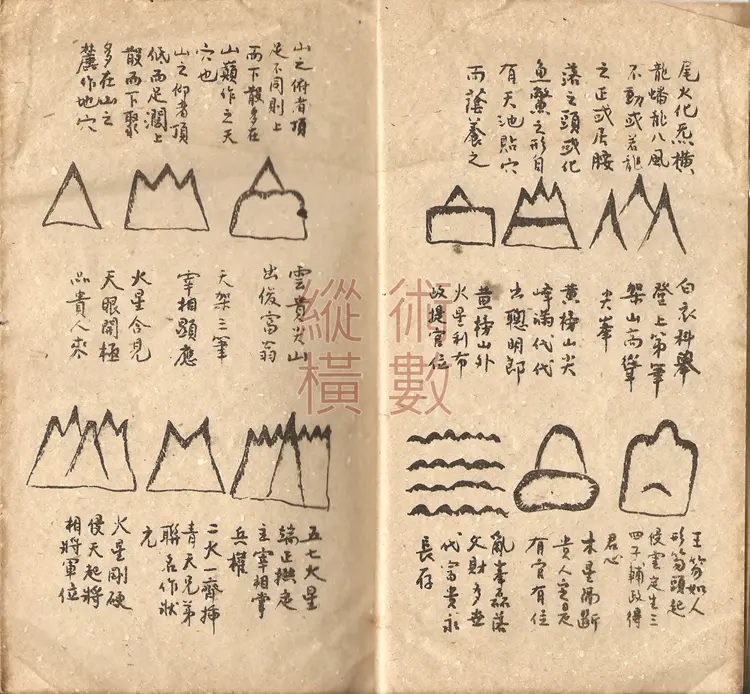 尾火化炁橫
龍蟠龍八風
不動或若龍
之正或居腰
落之頭或化
魚鱉之形自
有天池貼穴
而蔭養之
白衣科舉
登上第筆
架山高聳
尖峯
黃榜山尖
峰滿代代
出聰明郎
黃榜山外
火星利市
提官位
玉笏如人
形笏頭起
侵雲定生三
四子輔政得
君心
木星斷
貴人定是
有官有位
亂峯磊落
文財多世
代富貴永
長存
山之俯者頂
足不同則上
而下散多在
山巔作之天
穴也
山之仰者頂
低而足濶上
散而下聚
多在山之
麓作地穴
雲貴尖山
出俊富翁
天架三筆
宰相顯應
火星合見
天眼開極
品貴人來
五七火星
端正
主宰相掌
兵權
二火一齊插
青天兄弟
聯名作狀
元
火星剛硬
侵天起將
相將軍位
術數
縱橫